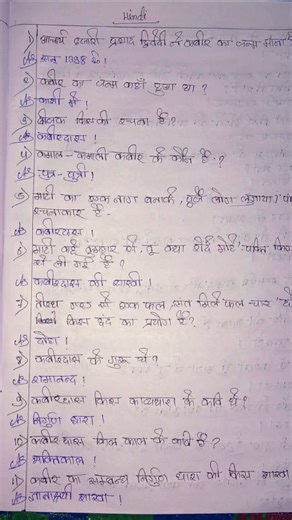 Hindi
1) आचार्य हजारी प्रसाद द्विवेदी ने कबीर का जन्म माना है
Ans सन् 1398 ई०
2) कबीर का जन्म कहाँ हुआ था ?
Ans काशी में !
3) बीजक किसकी रचना है ?
Ans कबीरदास !
4) कमाल - कमाली कबीर के कौन हैं ?
Ans पुत्र - पुत्री !
5) माटी का एक नाग बनाके, पुजे लोग लुगाया !
रचनाकार हैं -
Ans कबीरदास !
6) माटी कहे कुम्हार से तू क्या रौंदे मोहे" पंक्ति किस
से ली गई है ?
Ans कबीरदास की साखी !
7) तीरथ गए से एक फल संत मिले फल चार
किस छंद का प्रयोग है ?
Ans दोहा !
8) कबीरदास के गुरु थे ?
Ans रामानन्द !
9) कबीरदास किस काव्यधारा के कवि थे ?
Ans निर्गुण धारा !
10) कबीरदास किस काल के कवि हैं ?
Ans भक्तिकाल !
11) कबीर का सम्बन्ध निर्गुण धारा की किस शाखा
Ans ज्ञानाश्रयी शाखा !